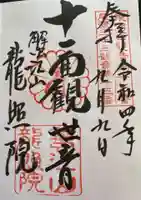 奉拝 令和四年
九月九日
十一面観世音
蟹光山
龍照院
龍照院